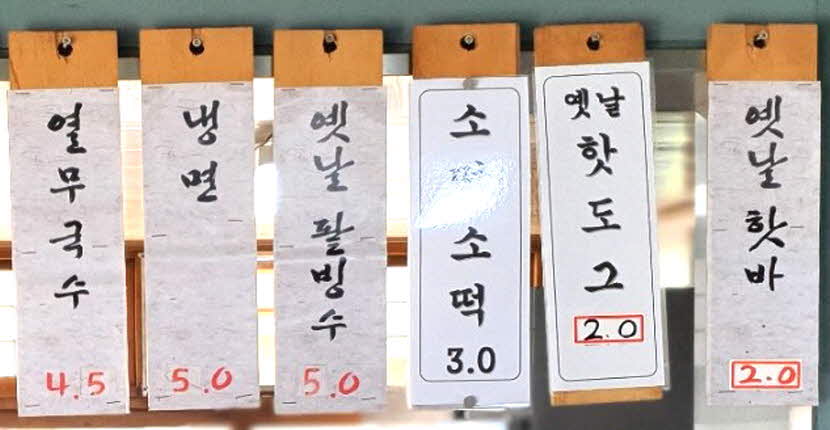 열무국수
4.5
냉면
5.0
옛날 팥빙수
5.0
소
소떡
3.0
옛날
핫도그
2.0
옛날 핫바
2.0